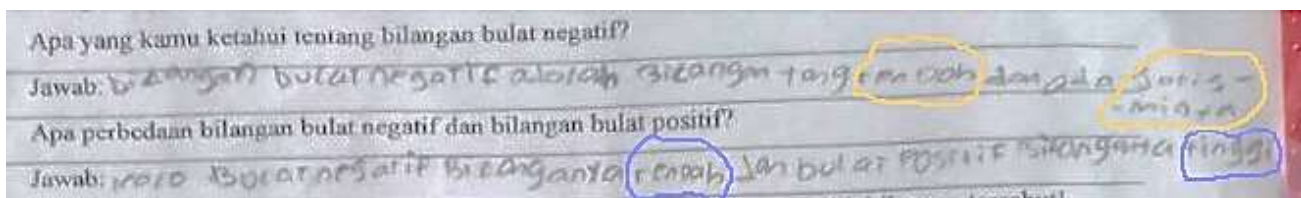 Apa yang kamu ketahui tentang bilangan bulat negatif?
Jawab: bilangan bulat negatif adalah bilangan yang rendah dan ada garis -
-minya
Apa perbedaan bilangan bulat negatif dan bilangan bulat positif?
Jawab: Bulat negatif Bilanganya rendah dan bulat positif bilangana tinggi